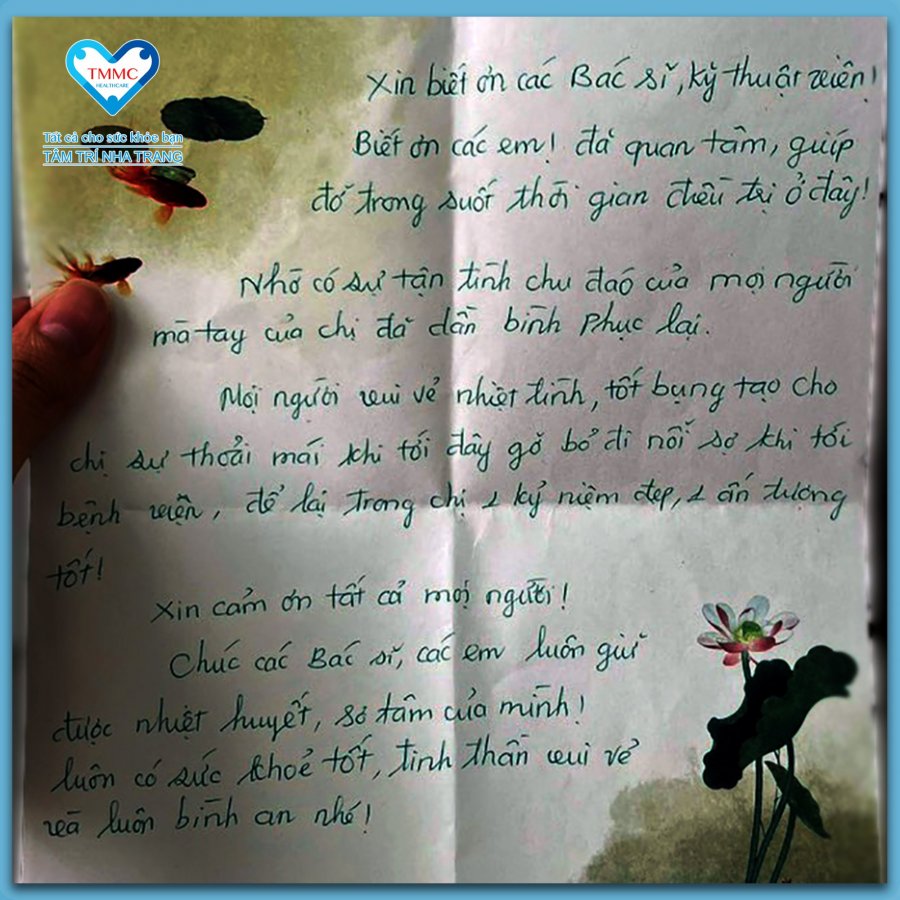 TMMC
HEALTHCARE
Tất cả cho sức khỏe bạn
TÂM TRÍ NHA TRANG
Xin biết ơn các Bác sĩ, kỹ thuật viên!
Biết ơn các em! đã quan tâm, giúp
đỡ trong suốt thời gian điều trị ở đây!
Nhờ có sự tận tình chu đáo của mọi người
mà tay của chị đã dần bình phục lại.
Mọi người vui vẻ nhiệt tình, tốt bụng tạo cho
chị sự thoải mái khi tới đây gỡ bỏ đi nỗi sợ khi tới
bệnh viện, để lại trong chị 1 kỷ niệm đẹp, 1 ấn tượng
tốt!
Xin cảm ơn tất cả mọi người!
Chúc các Bác sĩ, các em luôn giữ
được nhiệt huyết, sơ tâm của mình!
luôn có sức khoẻ tốt, tinh thần vui vẻ
và luôn bình an nhé!